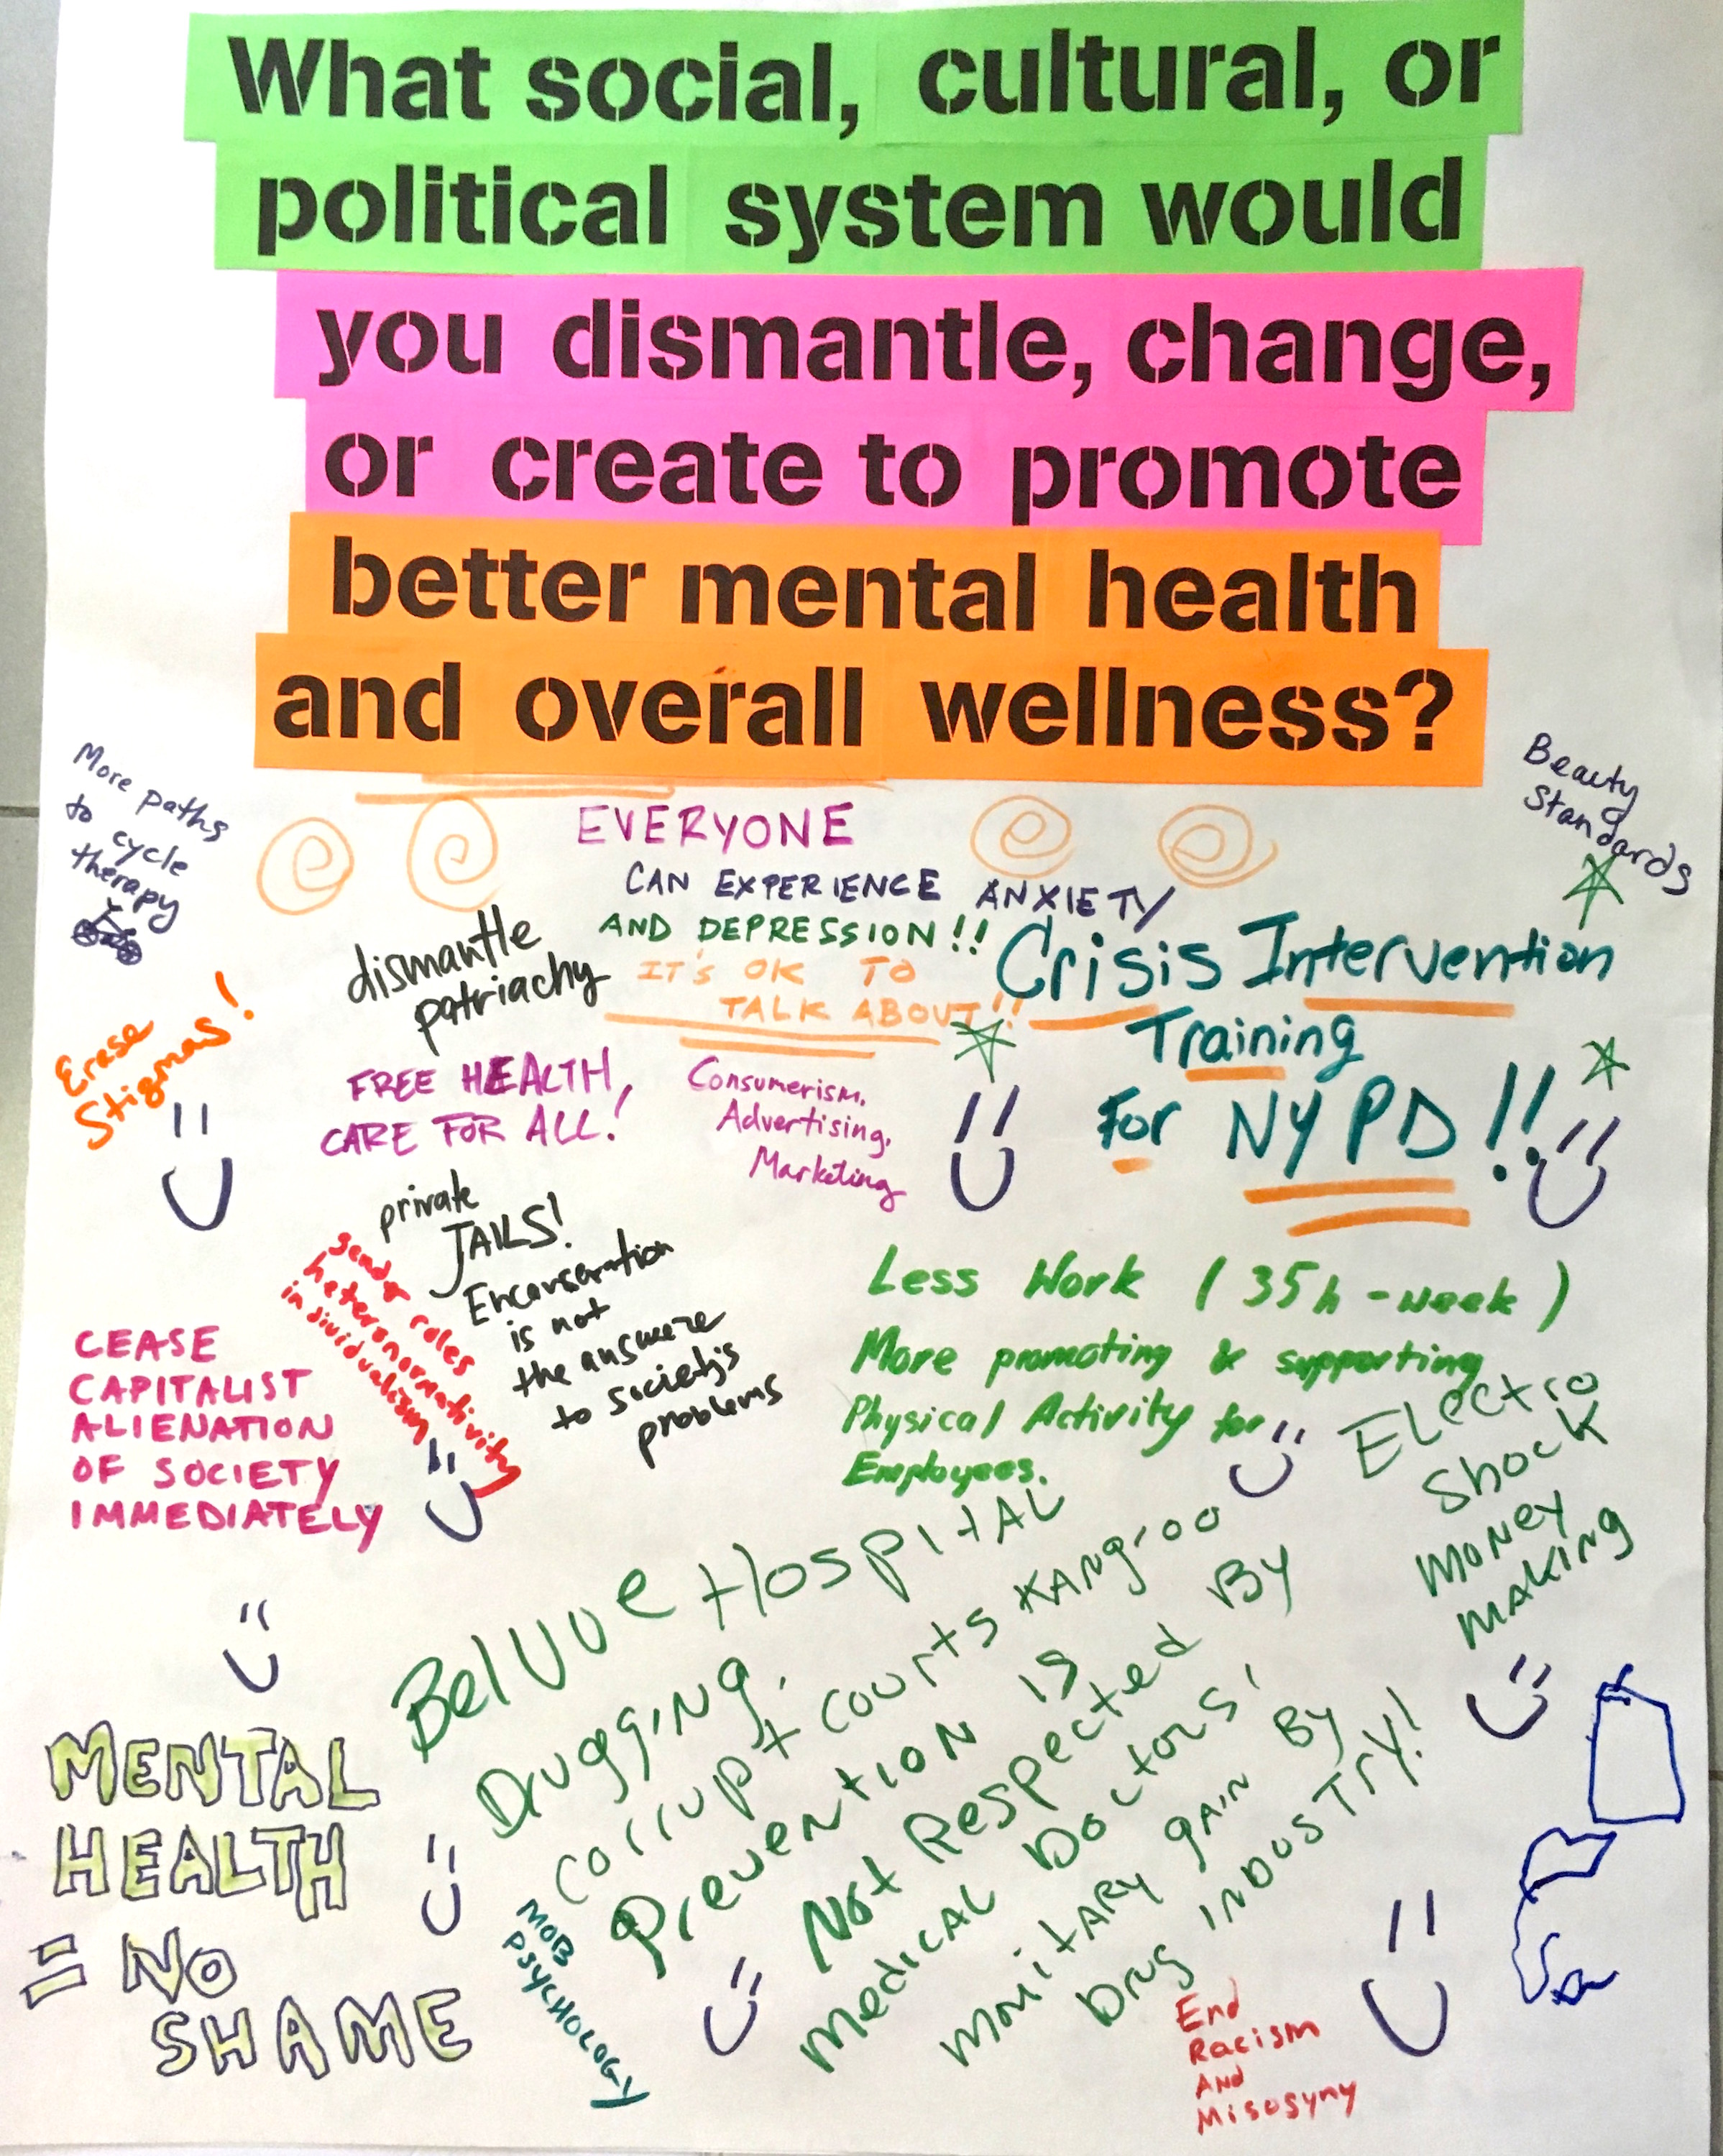 What social, cultural, or
political system would
you dismantle, change,
or create to promote
better mental health
and overall wellness?
More paths
to cycle
therapy
Beauty
Standards
EVERYONE
CAN EXPERIENCE ANXIETY
AND DEPRESSION!!
IT'S OK TO
TALK ABOUT!!
dismantle
patriachy
Crisis Intervention
Training
For NYPD!!
Erase
Stigmas!
FREE HEALTH
CARE FOR ALL!
Consumerism,
Advertising,
Marketing
private
JAILS!
Encarseration
is not
the answere
to society's
problems
gender roles
heteronormativity
individualism
CEASE
CAPITALIST
ALIENATION
OF SOCIETY
IMMEDIATELY
Less Work (35h-week)
More promoting & supporting
Physical Activity for
Employees.
ELectro
Shock
Money
making
BelVUe Hospital
Drugging.
Corrupt courts Kangroo
Prevention is
Not Respected By
Medical Doctors!
Monitary gain By
Drug industry!
MENTAL
HEALTH
= NO
SHAME
MOB
PSYCHOLOGY
End
Racism
And
Misosyny